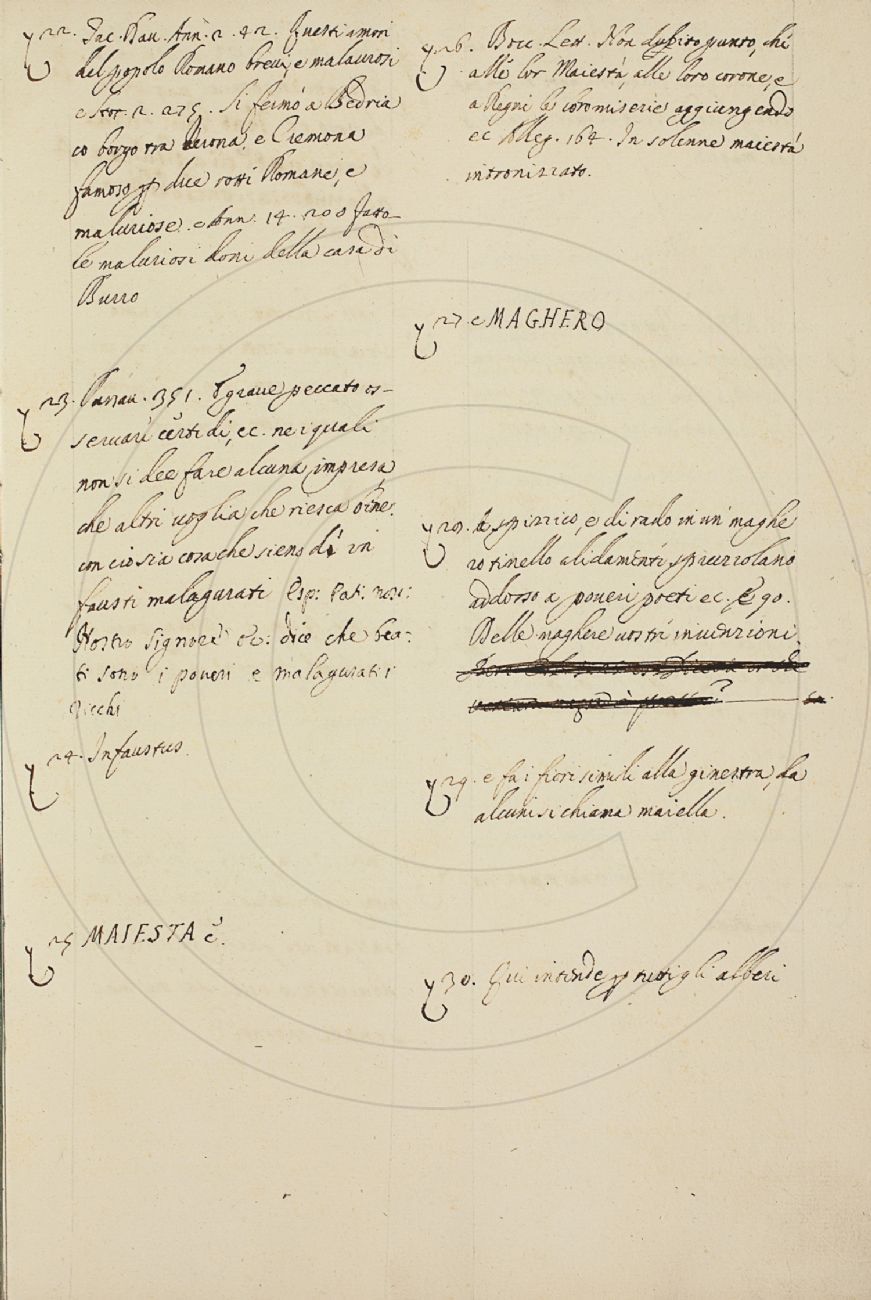 22. Tac. Dav. Ann. 2. 42. Questi amori
del popolo Romano brevi, e malaurosi
e Stor. 2. 275. Si fermò a Bedria
co borgo tra Verona, e Cremona
famoso p due rotti Romane, e
maluriose. e Ann. 14. 200 fatto
le maluriosi doni della casa di
Burro
23. Passav. 351. È grave peccato os-
servare certi dì, ec. nei quali
non si dee fare alcuna impresa,
che altri voglia che riesca bene.
con ciò sia cosa che sieno dì in
fausti malagurati Esp: Pat: nos:
Nostro Signore ec: dice che bea-
ti sono i poveri e malagurati i
ricchi
24. Infaustus.
25 MAIESTA è.
26. Bocc. Lett. Non dubito punto, che
alle lor Maiestà, alle loro corone, e
a Regni le loro miserie aggiungendo
ec Alleg. 164. In solenne maiestà
intronizzato.
27. e MAGHERO
28. a spizzico, e di rado in un maghe
ro tinello alidamenti spruzzolano
addosso a poveri poeti ec. E 90.
Delle maghere vostri invenzioni.
29. e fa i fiori simili alla ginestra, da
alcuni si chiama maiella.
30. Qui intende p tutti gli alberi